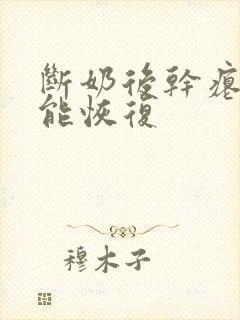 斷奶後幹癟
能恢復
穆木子